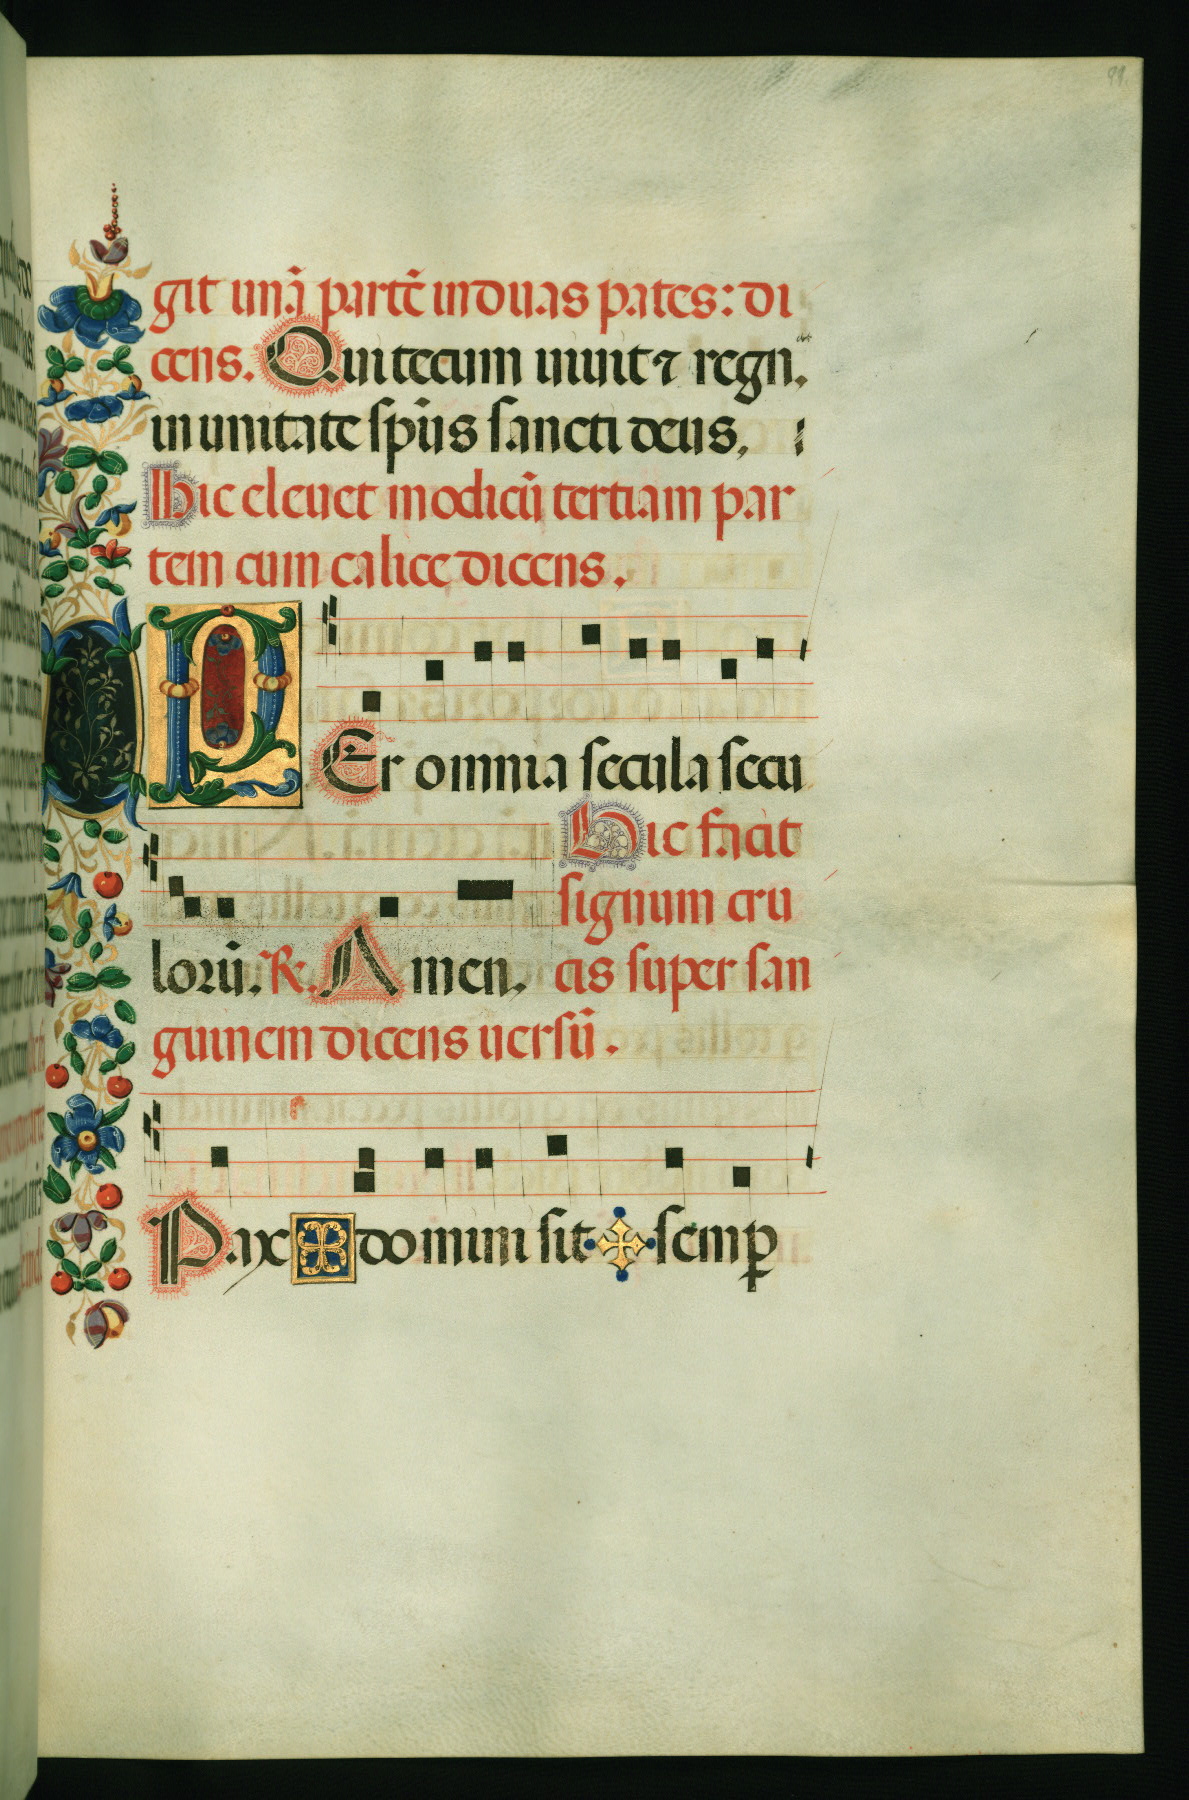 91.
git unā partē in duas pates: di
cens. Qui tecum uiuit ⁊ regn.
in unitate sp̄us sancti deus,
Hic eleuet modicū tertiam par
tem cum calice dicens.
PEr omnia secula secu
lorū. ℟. Amen,
Hic facit
signum cru
cis super san
guinem dicens uersū.
Pax ✠ domini sit ✠ semꝑ